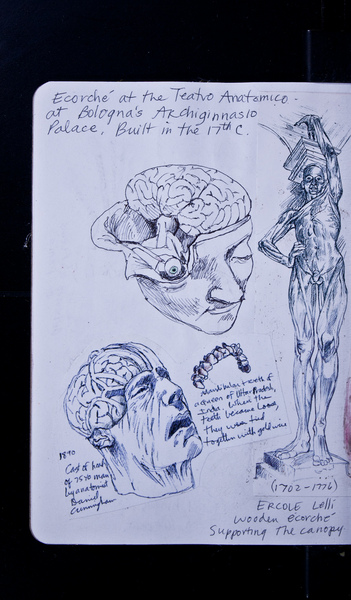 Ecorché at the Teatro Anatomico -
at Bologna's Archiginnasio
Palace. Built in the 17th C.
Mandibular teeth of
a queen of Uttar Pradesh,
India. When the
teeth became loose,
they were tied
together with gold wire
1890
Cast of head
of 75 yo man
by anatomist
Daniel
Cunningham
(1702-1776)
ERCOLE Lelli
Wooden écorché
Supporting The canopy